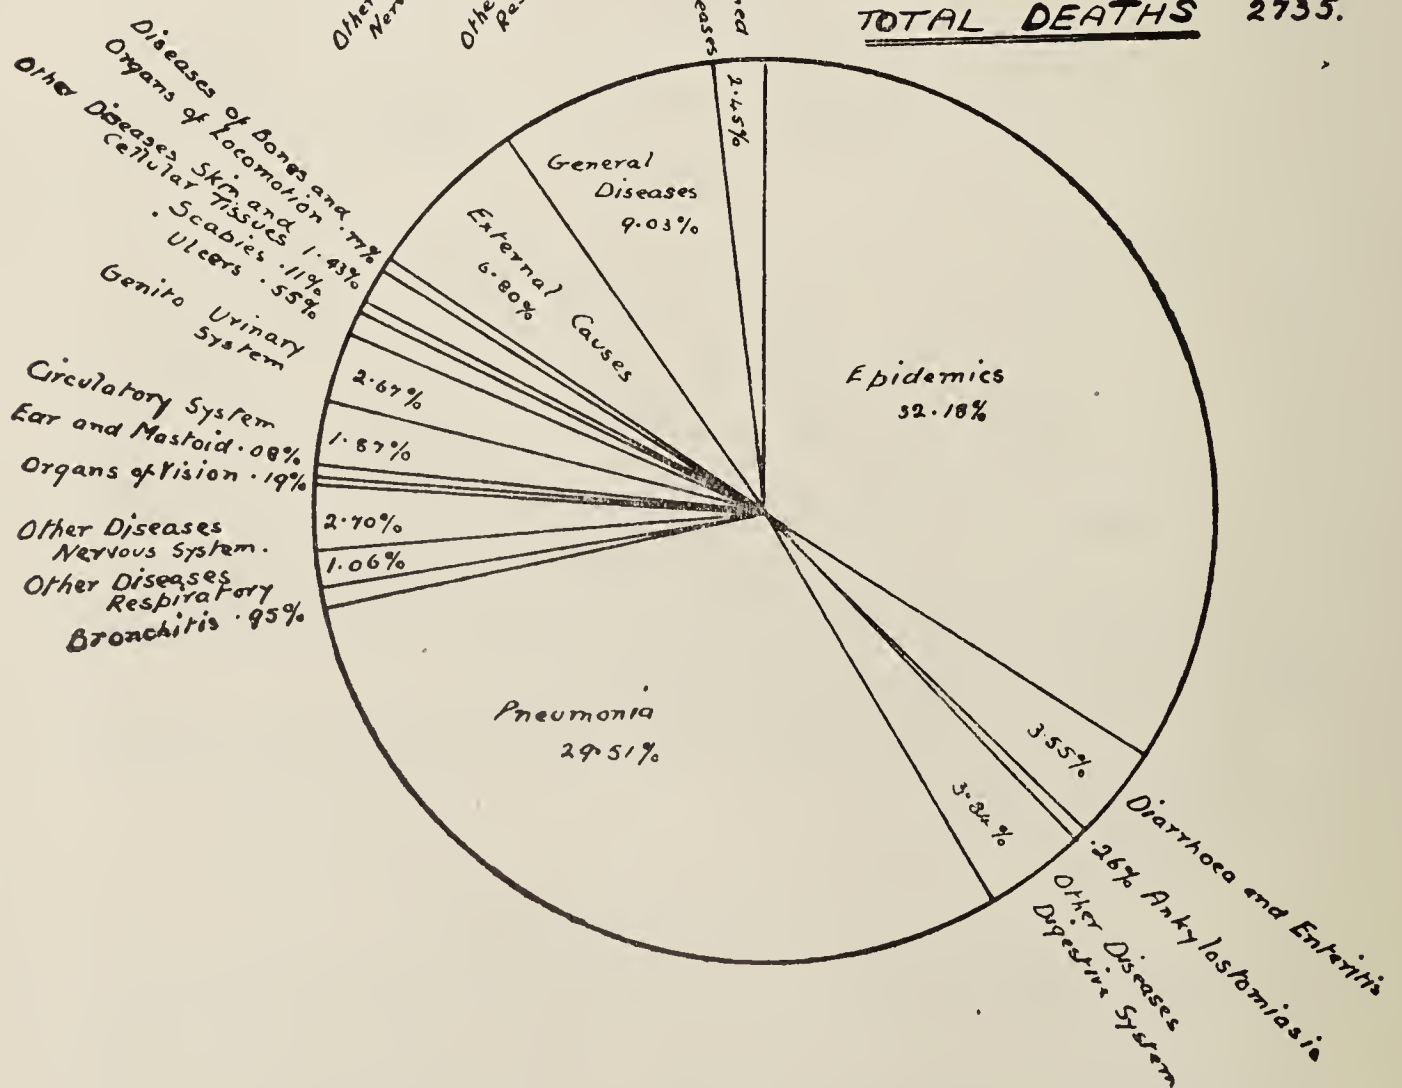 TOTAL DEATHS 2735.
Other
Nerv
Othe
Res
eases
ned
2.45%
General
Diseases
9.03%
External Causes
6.80%
Diseases of Bones and
Organs of Locomotion .77%
Other Diseases Skin and
Cellular Tissues 1.43%
Scabies .11%
Ulcers .55%
Genito Urinary
System
2.67%
Circulatory System
1.87%
Ear and Mastoid .08%
Organs of Vision .19%
Other Diseases
Nervous System.
2.70%
Other Diseases
Respiratory
1.06%
Bronchitis .95%
Epidemics
32.18%
Pneumonia
29.51%
3.55%
Diarrhoea and Enteritis
.26% Ankylostomiasis
3.84%
Other Diseases
Digestive System